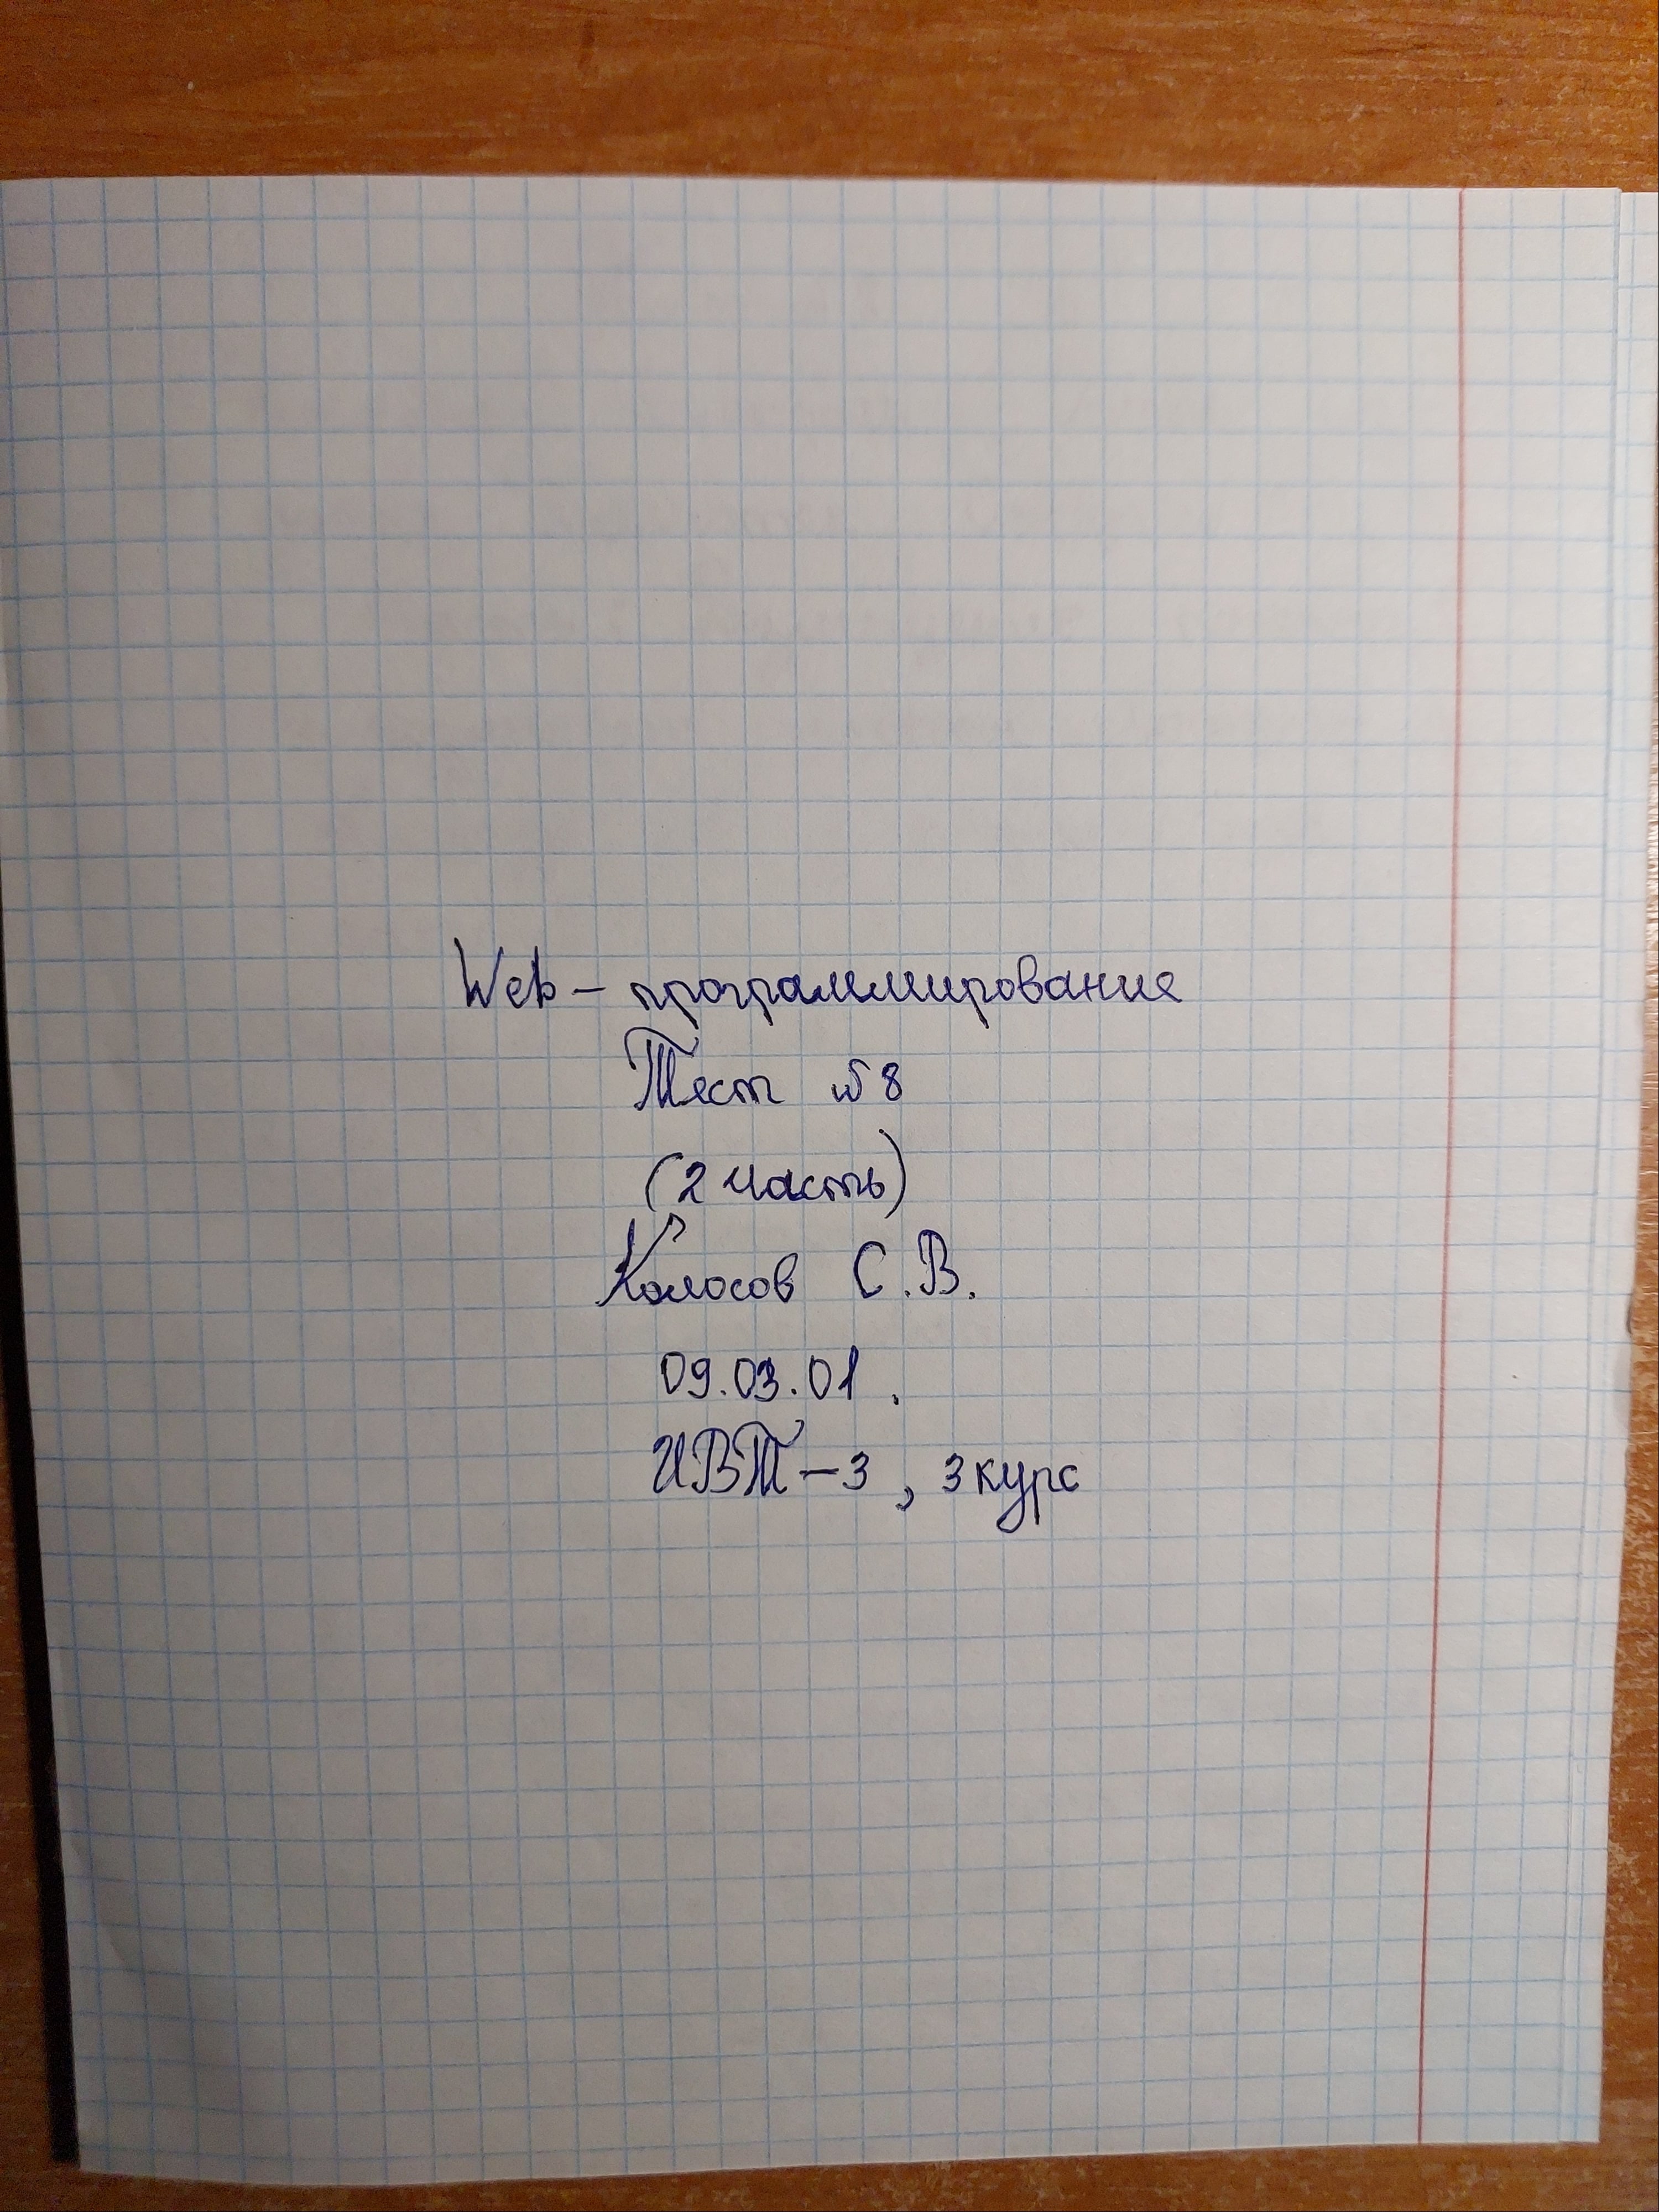 Web – программирование
Тест №8
(2 часть)
Колосов С.В.
09.03.01.
ИВТ – 3, 3 курс